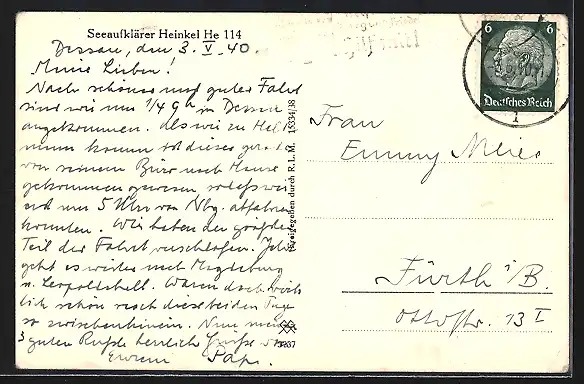 Seeaufklärer Heinkel He 114
Dessau, den 3. V. 40.
Meine Lieben!
Nach schöner und guter Fahrt
sind wir um 1/4 9h in Dessau
angekommen. Als wir zu
kamen
von seinem Büro nach Hause
gekommen gewesen
um 5 Uhr von Nbg. abfahren
konnten. Wir haben den größten
Teil der Fahrt verschlafen. Jetzt
geht es weiter nach Magdeburg
u. Leopoldshall. Waren doch wirk-
lich schön rasch diese beiden Tage
so zwischenhinein. Nun
3 guten Rufste herzlich Grüße von
Eurem Papa.
Freigegeben durch R. L. M. 15334/38
3237
6 6
Deutsches Reich
Frau
Emmy Meier
Fürth i/B.
Ottostr. 13 I